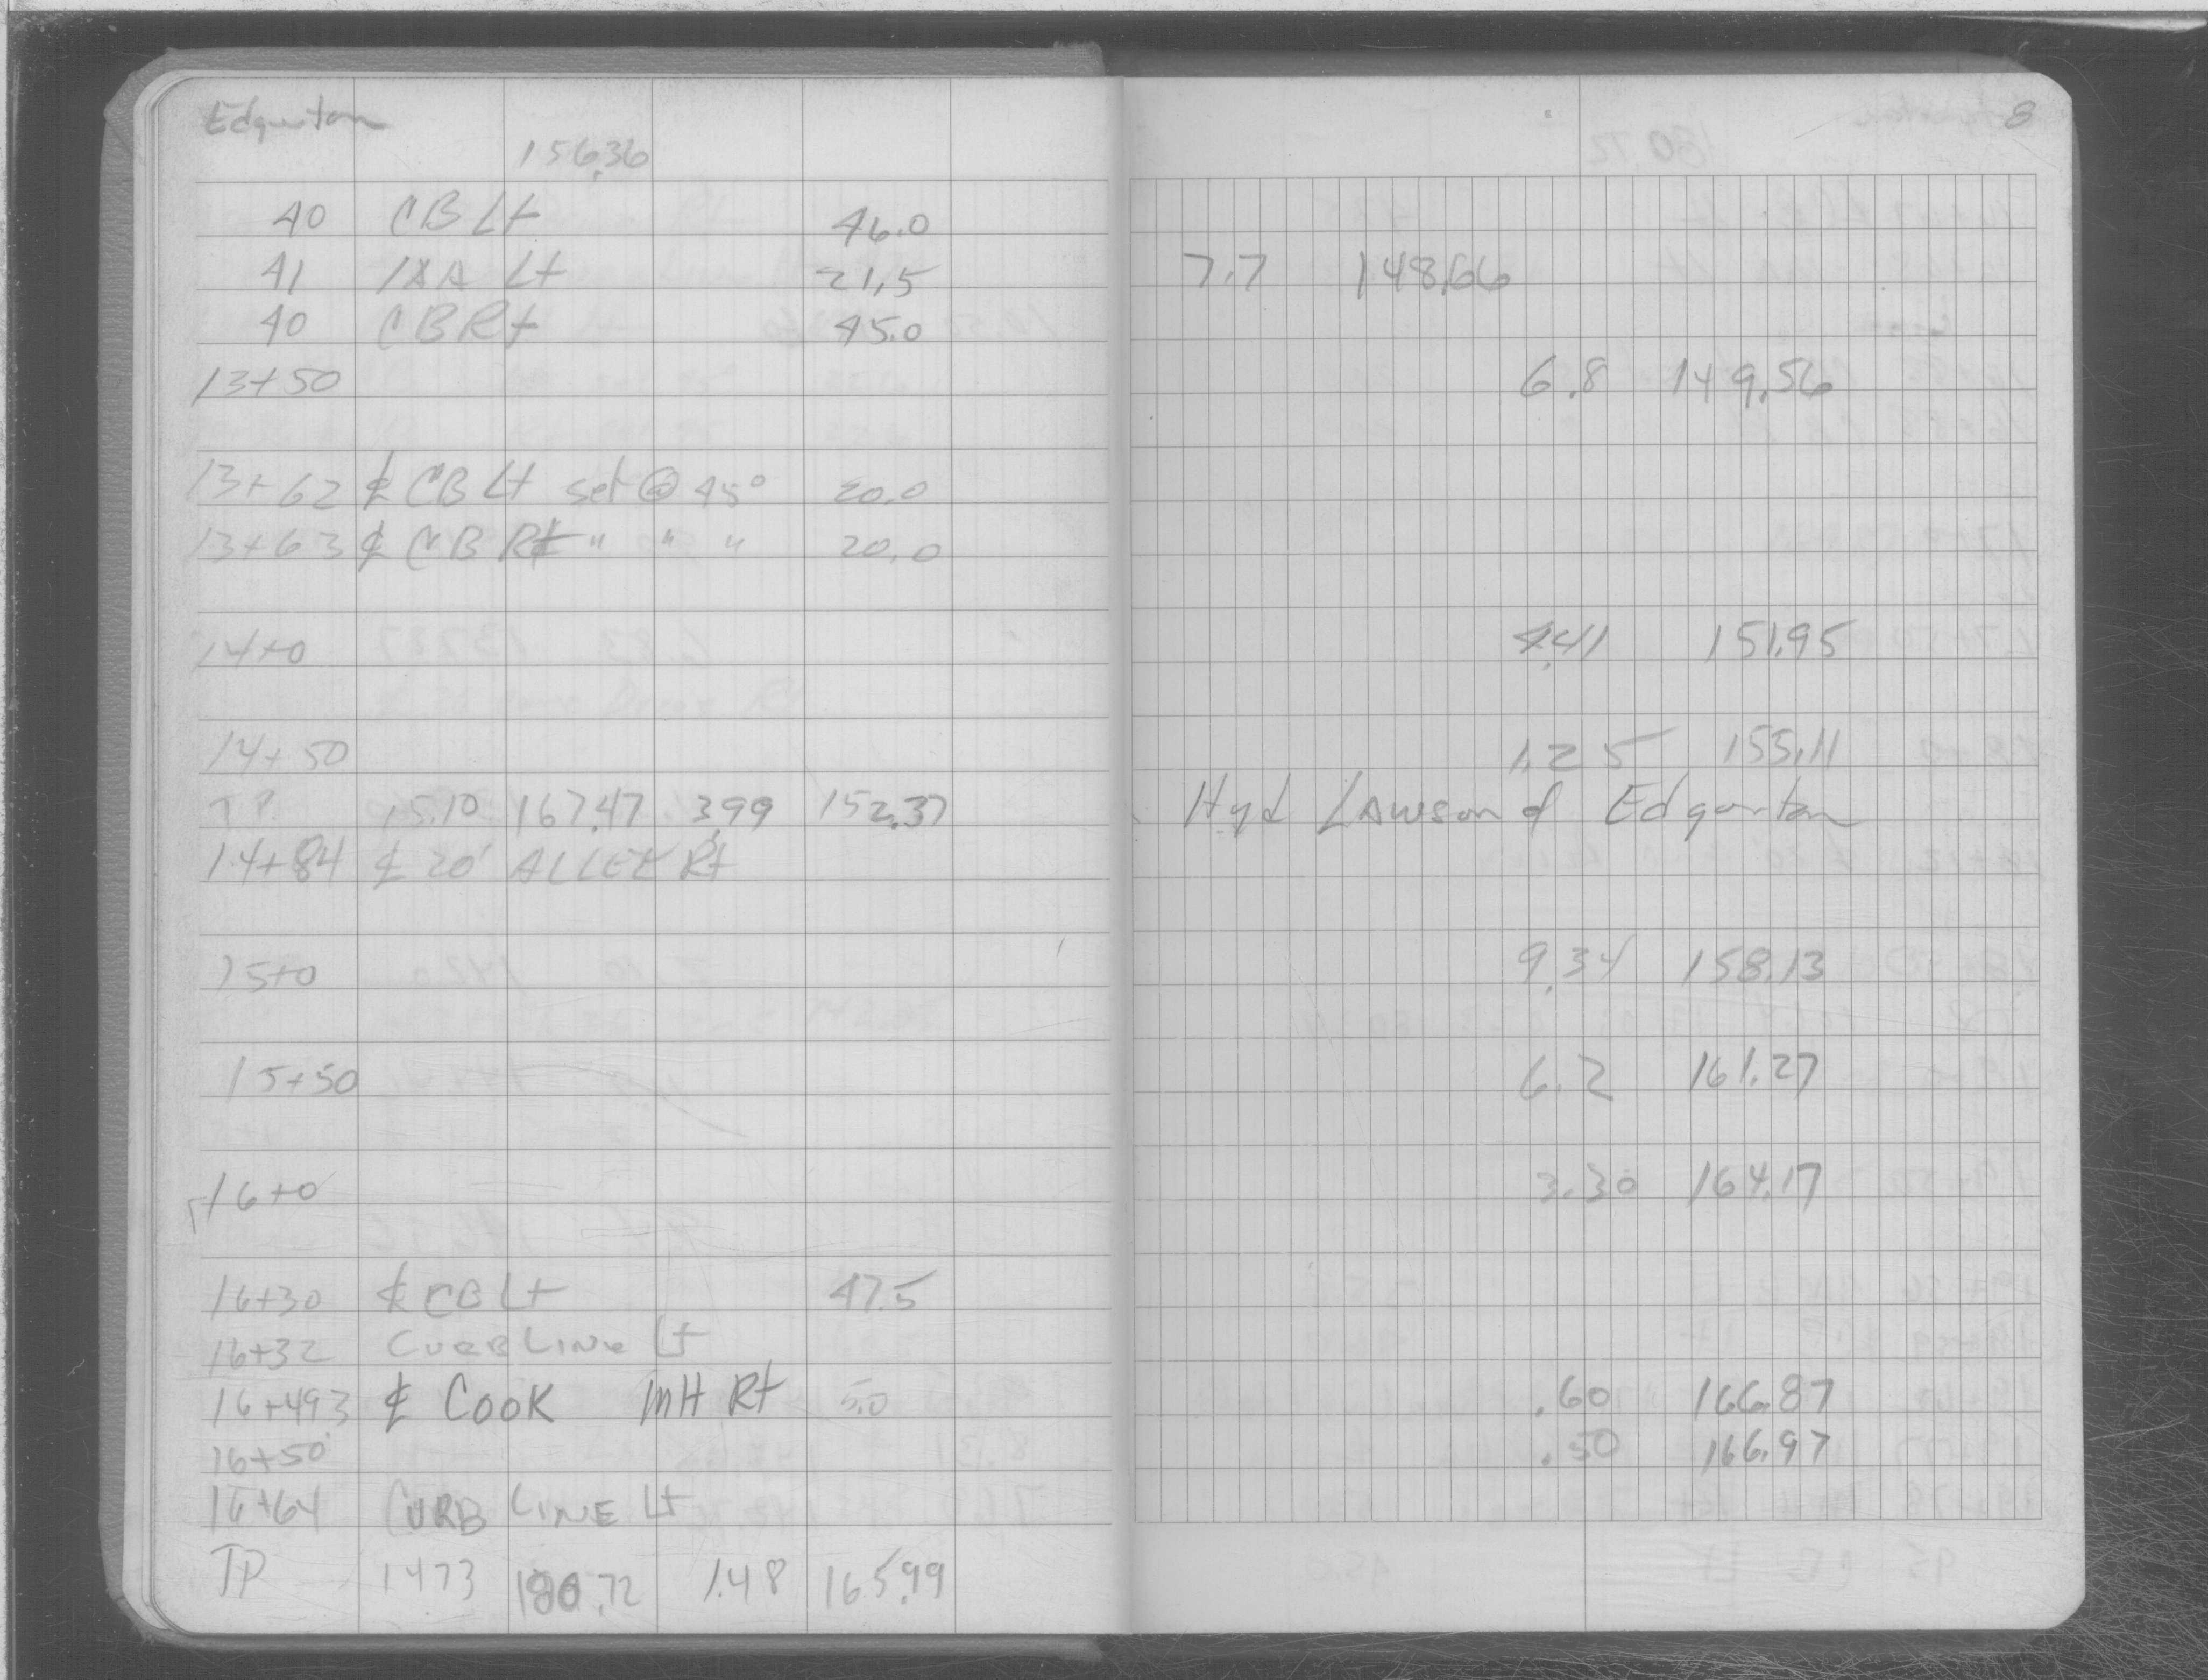 Edgerton 8
156.36
40 CB Lt 46.0
41 Lt 21.5 7.7 148.66
40 CB Rt 45.0
13+50 6.8 149.56
13+62 ℄ CB Lt set @ 45° 20.0
13+63 ℄ CB Rt " " " 20.0
14+0 4.41 151.95
14+50 1.25 155.11
TP 15.10 167.47 3.99 152.37 Hyd Lawson & Edgerton
14+84 ℄ 20' ALLEY Rt
15+0 9.34 158.13
15+50 6.2 161.27
16+0 3.30 164.17
16+30 ℄ CB Lt 47.5
16+32 CURB LINE Lt
16+493 ℄ COOK MH Rt 5.0 .60 166.87
16+50 .50 166.97
16+64 CURB LINE Lt
TP 1473 180.72 1.48 165.99